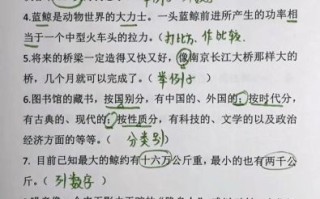 4.蓝鲸是动物世界的大力士。一头蓝鲸前进所产生的功率相
当于一个中型火车头的拉力。(打比方、作比较)
5.将来的桥梁一定造得又快又好,像南京长江大桥那样大的
桥,几个月就可以完成了。(举例子)
6.图书馆的藏书,按国别分,有中国的、外国的;按时代分,
有古典的、现代的;按性质分,有科技的、文学的以及政治
经济方面的等等。(分类别)
7.目前已知最大的鲸约有十六万公斤重,最小的也有两千公
斤。(列数字)